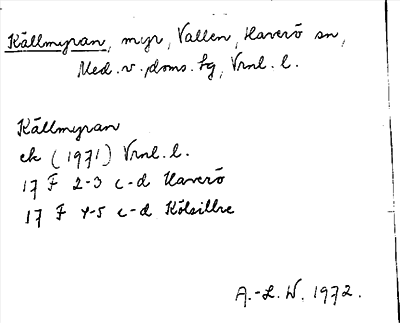 Källmyran, myr, Vallen, Haverö sn,
Med. v. doms. sg, Vrnl. l.
Källmyran
ek (1971) Vrnl. l.
17 F 2-3 c-d Haverö
17 F 4-5 c-d Kölsillre
A.-L. W. 1972.